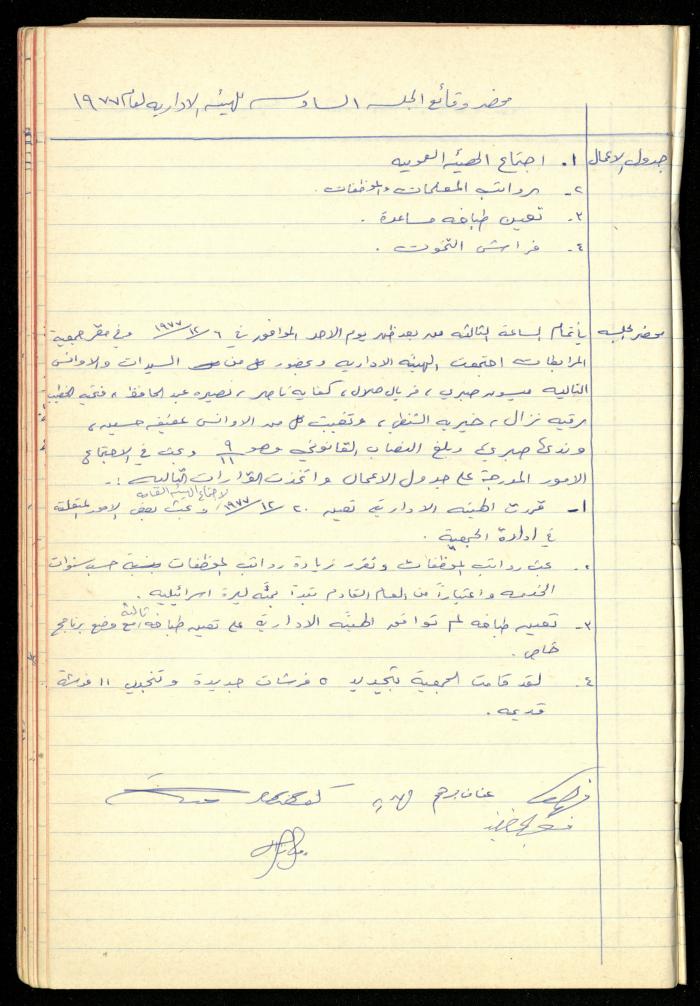 محضر وقائع الجلسه السادسه للهيئه الاداريه لعام ١٩٧٧
جدول الاعمال ١. اجتماع الهيئه العموميه
٢- رواتب المعلمات والموظفات.
٣- تعين طباخه مساعدة.
٤- فراش التخوت.
محضر الجلسه في تمام الساعة الثالثه من بعد ظهر يوم الاحد الموافق في ٦/١٢/١٩٧٧ وفي مقر جمعية
المرابطات اجتمعت الهيئه الاداريه وبحضور كل من السيدات والاوانس
التاليه ميسون صبري، فريال هلال، كفايه ناصر، نصيره عبد الحافظ، فتحيه الخطيب
رقيه نزال، خيريه الشنطي، وتغيبت كل من الاوانس عفيفه حسين،
وندى صبري وبلغ النصاب القانوني وهو ٩/١١ وبحث في الاجتماع
الامور المدرجة على جدول الاعمال واتخذت القرارات التاليه :-
١- قررت الهيئه الادارية تعيين ٢٠/١٢/١٩٧٧ لاجتماع الهيئه العامه وبحث بعض الامور المتعلقة
في ادارة الجمعية.
٢- بحث رواتب الموظفات وتقرر زيادة رواتب الموظفات حسب سنوات
الخدمه واعتباراً من العام القادم تبدأ بمئة ليرة اسرائيليه.
٣- تعيين طباخه لم توافق الهيئه الادارية على تعيين طباخه ثالثة مع وضع برنامج
خاص.
٤- لقد قامت الجمعية بتجديد ٥ فرشات جديدة وتنجيد ١١ فرشة
قديمه.
عنان برهم